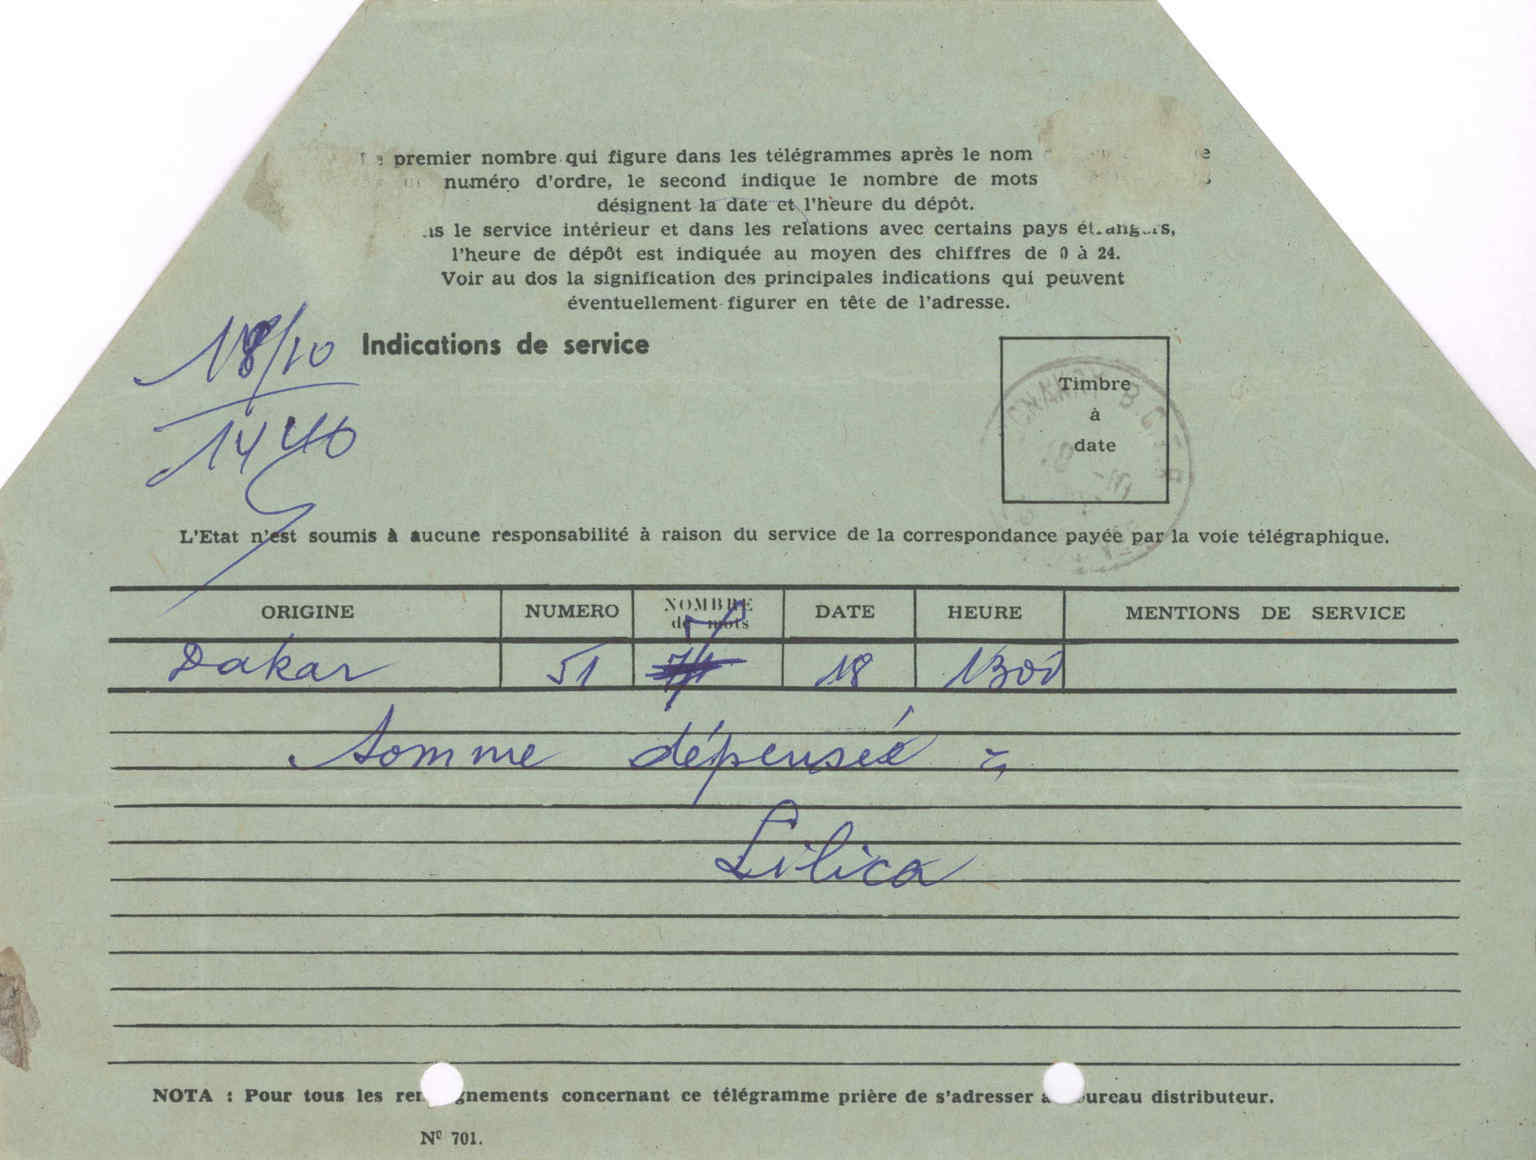 premier nombre qui figure dans les télégrammes après le nom
numéro d'ordre, le second indique le nombre de mots
désignent la date et l'heure du dépôt.
le service intérieur et dans les relations avec certains pays étrangers,
l'heure de dépôt est indiquée au moyen des chiffres de 0 à 24.
Voir au dos la signification des principales indications qui peuvent
éventuellement figurer en tête de l'adresse.
18/10
Indications de service
1440
Timbre
à
date
L'Etat n'est soumis à aucune responsabilité à raison du service de la correspondance payée par la voie télégraphique.
ORIGINE NUMERO NOMBRE de mots DATE HEURE MENTIONS DE SERVICE
Dakar 51 18 1300
Somme dépensée =
Lilica
NOTA : Pour tous les concernant ce télégramme prière de s'adresser distributeur.
N° 701.